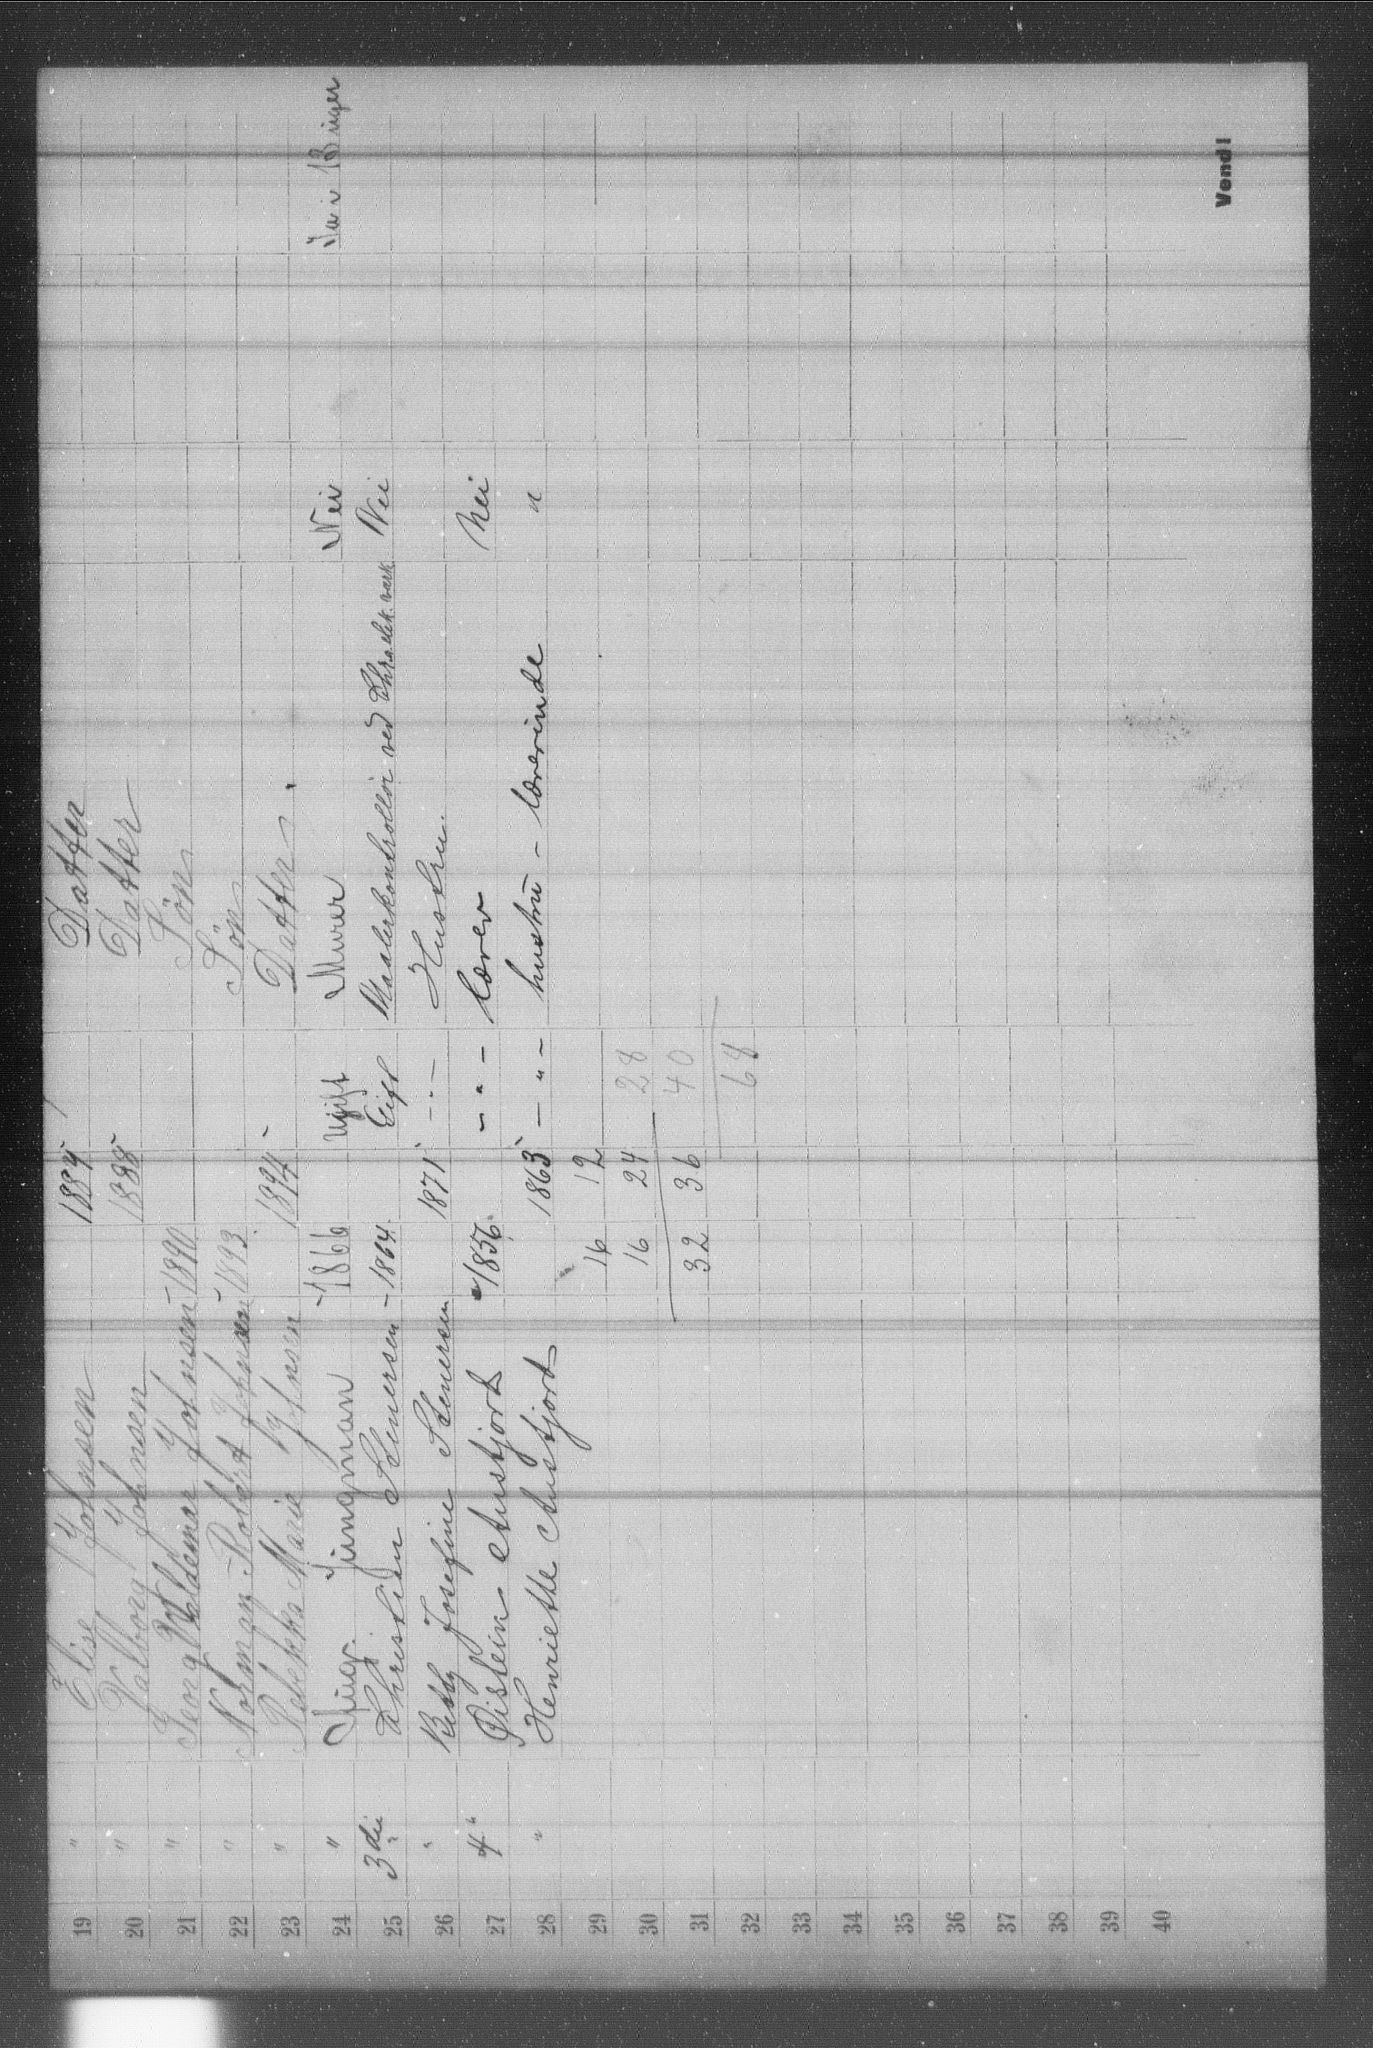 19 " Elise Johnsen 1884 Datter
20 " Valborg Johnsen 1888 Datter
21 " Georg Valdemar Johnsen - 1890 Søn
22 " Norman Robert Johnsen - 1893 Søn
23 " Rebekka Marie Johnsen 1894 Datter
24 " Jungman - 1866 Ugift Murer Nei Ja i 13 uger
25 3die " Christian Stenersen - 1864 Gift Maalerkontrollör ved Chra elek. værk Nei
26 " Betsy Josefine Stenersen 1871 - " - Hustru
27 4 " Øistein Austjord 1856 - " - lærer Nei
28 " Henriette Austjord 1863 - " - hustru - lærerinde "
29 16 12
30 16 24 28
31 32 36 40
32 68
33
34
35
36
37
38
39
40
Vend!